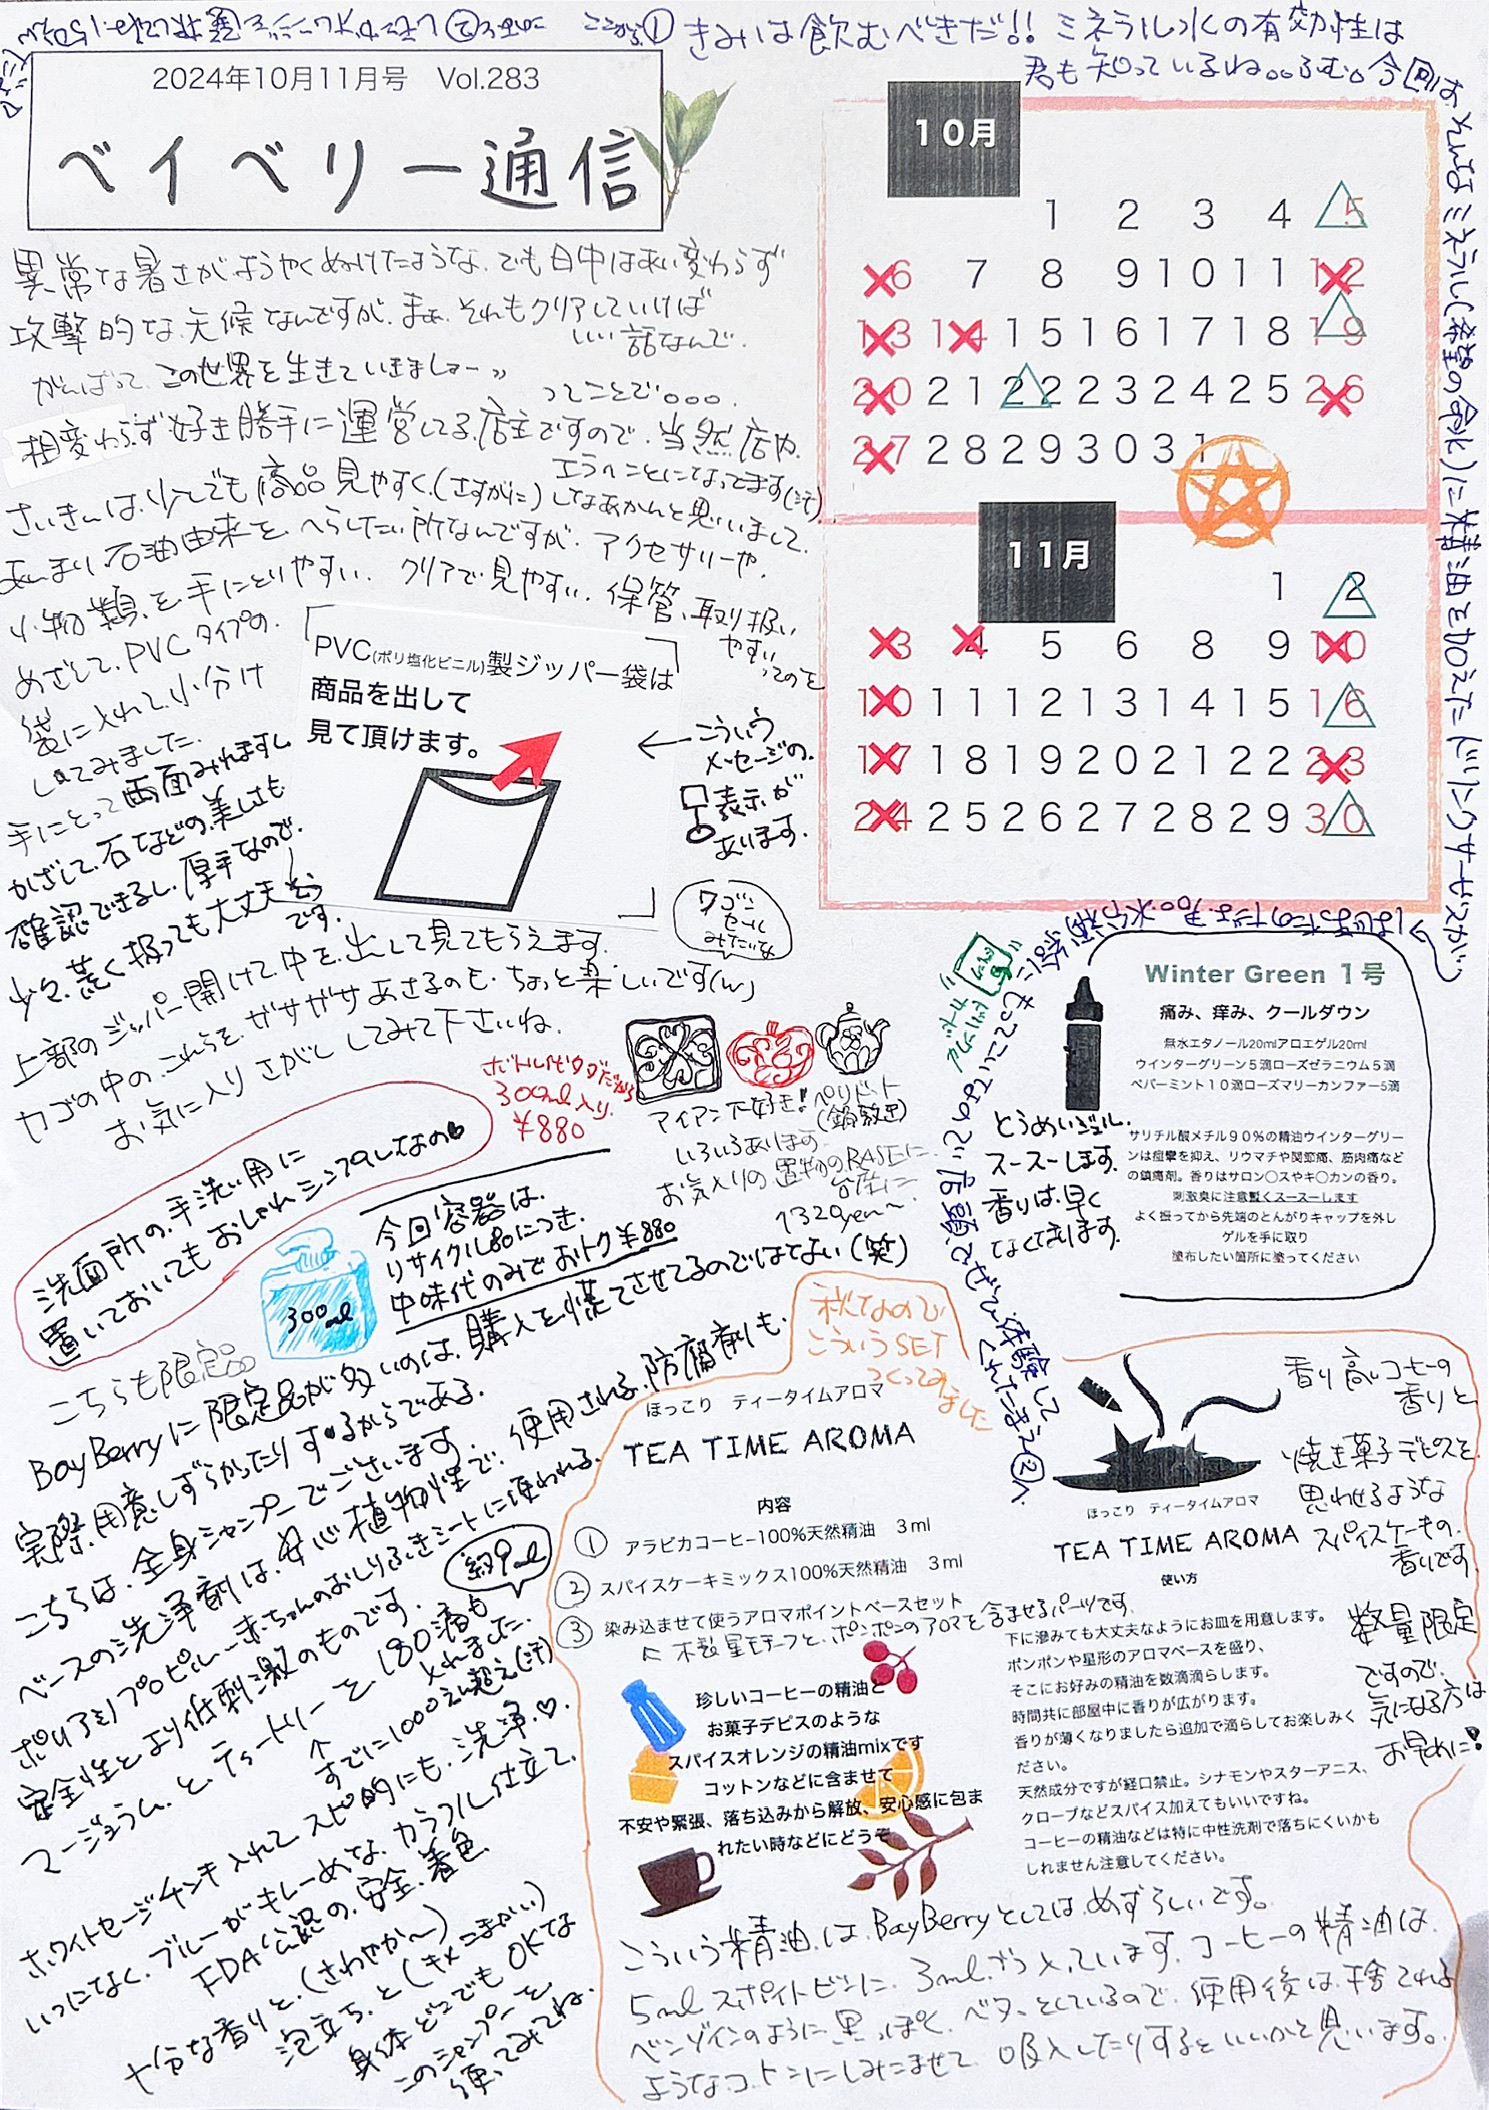 ここから① きみは飲むべきだ!! ミネラル水の有効性は
君も知っているね。。ふむ。今回は
そんなミネラル(希望の命水)に精油を加えたドリンクサービスが
はじまったのだよ。
水分補給に
もってこいなので店頭でぜひ体験して
くれたまえ②へ
2024年10月11月号 Vol.283
ベイベリー通信
異常な暑さがようやくぬけたような、でも日中はあい変わらず
攻撃的な天候なんですが、まぁ、それもクリアしていけば
いい話なんで、
がんばって この世界を生きていきましょー〃
ってことで。。。
相変わらず好き勝手に運営してる店主ですので、当然店や、
エラいことになってます(汗)
さいきんは、少しでも商品見やすく、(さすがに)しなあかんと思いまして、
あんまり石油由来を、へらしたい所なんですが、アクセサリーや、
小物類を手にとりやすい、クリアで見やすい、保管、取り扱い
やすいってのを
めざして、PVCタイプの
袋に入れて、小分け
してみました。
PVC(ポリ塩化ビニル)製ジッパー袋は
商品を出して
見て頂けます。
←こういう
メッセージの
表示が
あります。
手にとって両面みれますし
かざして、石などの、美しさも
確認できるし、厚手なので、
少々、荒く扱っても大丈夫そう
です。
上部のジッパー開けて、中を、出して見てもらえます。
ワゴン
セール
みたいな
カゴの中の、これらを、ガサガサあさるのも、ちょっと楽しいです(w)
お気に入りさがし してみて下さいね。
10月
1 2 3 4 5
6 7 8 9 10 11 12
13 14 15 16 17 18 19
20 21 22 23 24 25 26
27 28 29 30 31
11月
1 2
3 4 5 6 8 9 10
10 11 12 13 14 15 16
17 18 19 20 21 22 23
24 25 26 27 28 29 30
Winter Green 1号
痛み、痒み、クールダウン
無水エタノール20mlアロエゲル20ml
ウインターグリーン5滴ローズゼラニウム5滴
ペパーミント10滴ローズマリーカンファー5滴
サリチル酸メチル90%の精油ウインターグリー
ンは痙攣を抑え、リウマチや関節痛、筋肉痛など
の鎮痛剤。香りはサロン〇スやキ〇カンの香り。
刺激臭に注意暫くスースーします
よく振ってから先端のとんがりキャップを外し
ゲルを手に取り
塗布したい箇所に塗ってください
とうめいジェル、
スースーします。
香りは、早く
なくなります。
アイアン大好き!ペリドット
(鍋敷き)
いろいろあります
お気入りの置物のBASEに
台座に
1320yen〜
洗面所の、手洗い用に
置いておいてもおしゃれ シンプルしてなの♥
ボトル代タダだから
300ml入り、
¥880
300ml
今回容器は、
リサイクル品につき、
中味代のみでおトク¥880
こちらも限定品
BayBerryに限定品が多いのは、購入を慌てさせてるのではなくてよい(笑)
実際、用意しずらかったりするからである。
こちらは、全身シャンプーでございます。
ベースの洗浄剤は、安心植物性で、使用される、防腐剤も、
ポリアミノプロピル…赤ちゃんのおしりふきシートに使われる、
安全性と、より低刺激のものです。
約9ml
マージョラム、と、ティートリーを、180滴も
入れました。
↑すでに1000えん超え(汗)
ホワイトセージチンキ入れて、スピ的にも、洗浄。♡
いつになく、ブルーがキレーめな、カラフル仕立て、
FDA公認の、安全、着色
十分な香りと、(さわやか〜)
泡立ち、と(キメこまかい)
身体どこでもOKな
このシャンプーを
使ってみてね。
秋なので
こういうSET
つくってみました
ほっこり ティータイムアロマ
TEA TIME AROMA
内容
① アラビカコーヒー100%天然精油 3ml
② スパイスケーキミックス100%天然精油 3ml
③ 染み込ませて使うアロマポイントベースセット
木製星モチーフと、ポンポンのアロマを含ませるパーツです。
珍しいコーヒーの精油と
お菓子デピスのような
スパイスオレンジの精油mixです
コットンなどに含ませて
不安や緊張、落ち込みから解放、安心感に包ま
れたい時などにどうぞ
ほっこり ティータイムアロマ
TEA TIME AROMA
使い方
下に滲みても大丈夫なようにお皿を用意します。
ポンポンや星形のアロマベースを盛り、
そこにお好みの精油を数滴滴らします。
時間共に部屋中に香りが広がります。
香りが薄くなりましたら追加で滴らしてお楽しみく
ださい。
天然成分ですが経口禁止。シナモンやスターアニス、
クローブなどスパイス加えてもいいですね。
コーヒーの精油などは特に中性洗剤で落ちにくいかも
しれません注意してください。
香り高いコーヒーの
香りと
焼き菓子デピスを、
思わせるような
スパイスケーキの、
香りです
数量限定
ですので、
気になる方は
お早めに!
こういう精油は、BayBerryとしては、めずらしいです。
5mlスポイトビンに、3mlずつ入っています。コーヒーの精油は、
ベンゾインのように黒っぽく、ベターとしているので、使用後は、捨てれる
ようなコットンにしみこませて、吸入したりするといいかと思います。